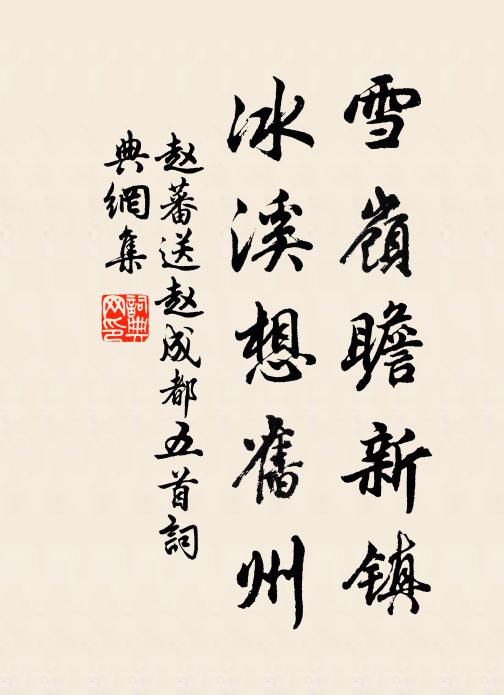 雪嶺瞻新鎮
冰溪想舊州
赵蕃送赵成都五首詞
典網集
詞典網印